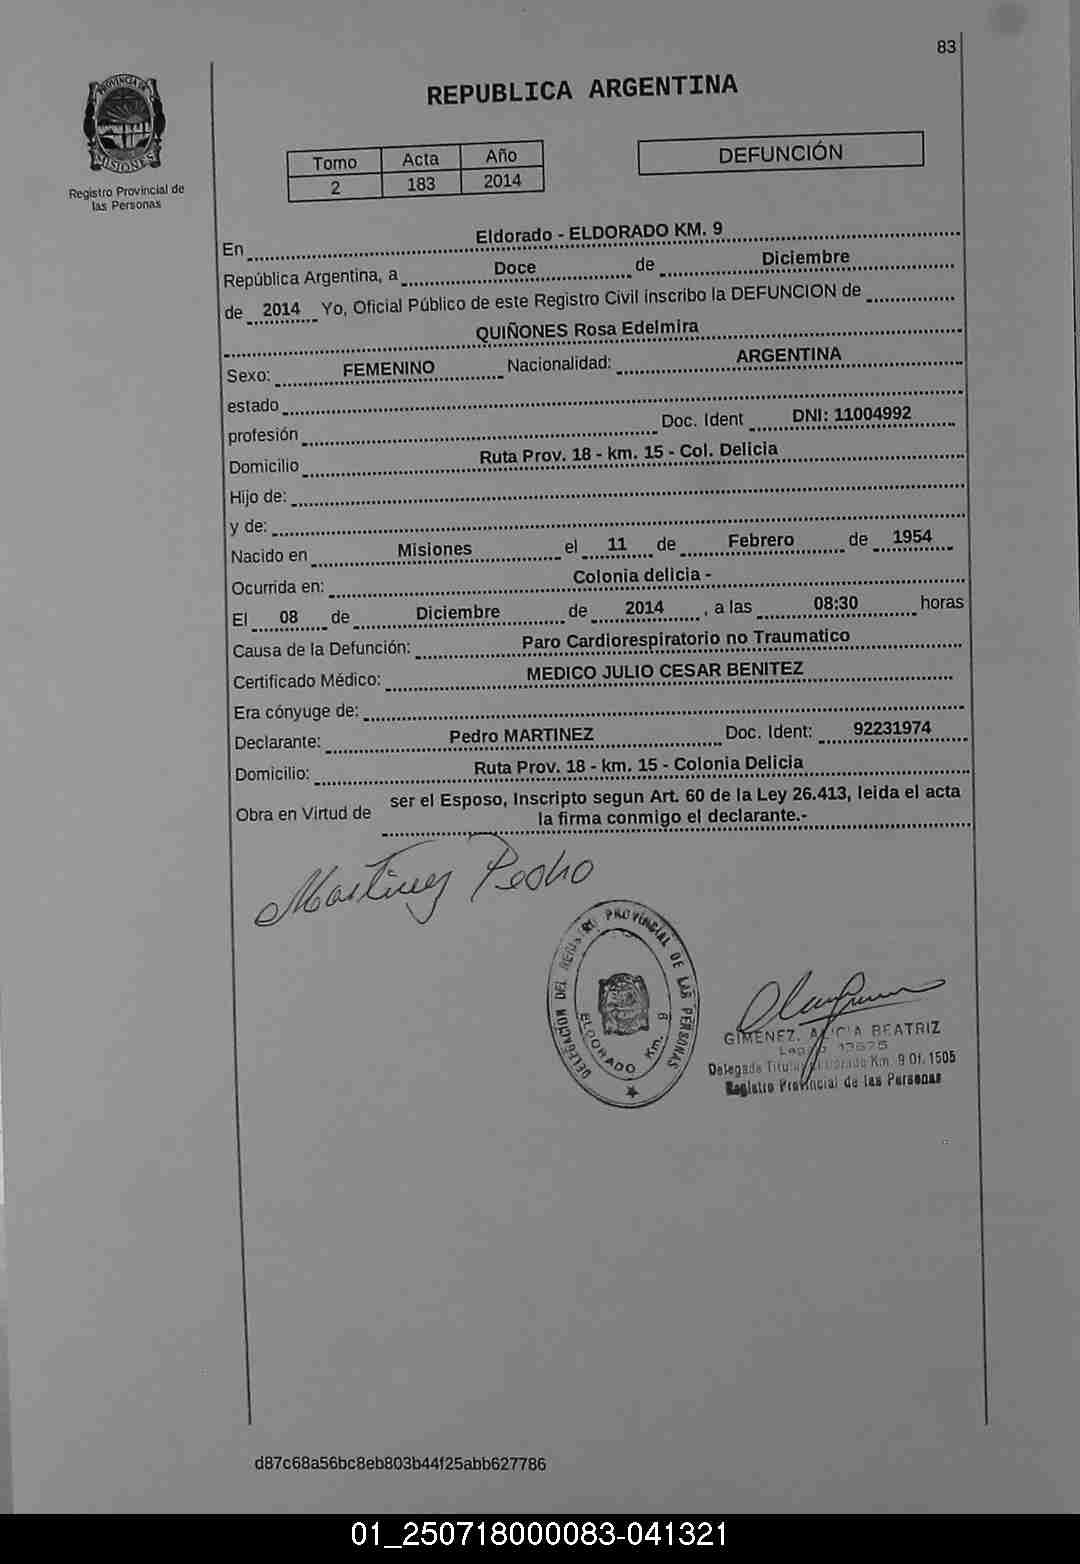 83
REPUBLICA ARGENTINA
PROVINCIA DE
MISIONES
Registro Provincial de
las Personas
Tomo Acta Año
2 183 2014
DEFUNCIÓN
En Eldorado - ELDORADO KM. 9
República Argentina, a Doce de Diciembre
de 2014 Yo, Oficial Público de este Registro Civil inscribo la DEFUNCION de
QUIÑONES Rosa Edelmira
Sexo: FEMENINO Nacionalidad: ARGENTINA
estado
profesión Doc. Ident DNI: 11004992
Domicilio Ruta Prov. 18 - km. 15 - Col. Delicia
Hijo de:
y de:
Nacido en Misiones el 11 de Febrero de 1954
Ocurrida en: Colonia delicia -
El 08 de Diciembre de 2014 , a las 08:30 horas
Causa de la Defunción: Paro Cardiorespiratorio no Traumatico
Certificado Médico: MEDICO JULIO CESAR BENITEZ
Era cónyuge de:
Declarante: Pedro MARTINEZ Doc. Ident: 92231974
Domicilio: Ruta Prov. 18 - km. 15 - Colonia Delicia
Obra en Virtud de ser el Esposo, Inscripto segun Art. 60 de la Ley 26.413, leida el acta
la firma conmigo el declarante.-
Martinez Pedro
DELEGACION DEL REGISTRO PROVINCIAL DE LAS PERSONAS
ELDORADO Km.
GIMENEZ, ALICIA BEATRIZ
Delegada Titular Eldorado Km. 9 Of. 1505
Registro Provincial de las Personas
d87c68a56bc8eb803b44f25abb627786
01_250718000083-041321